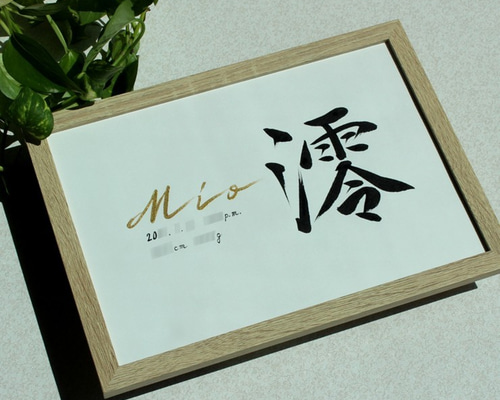 澪
Mio
20 . . p.m.
cm g